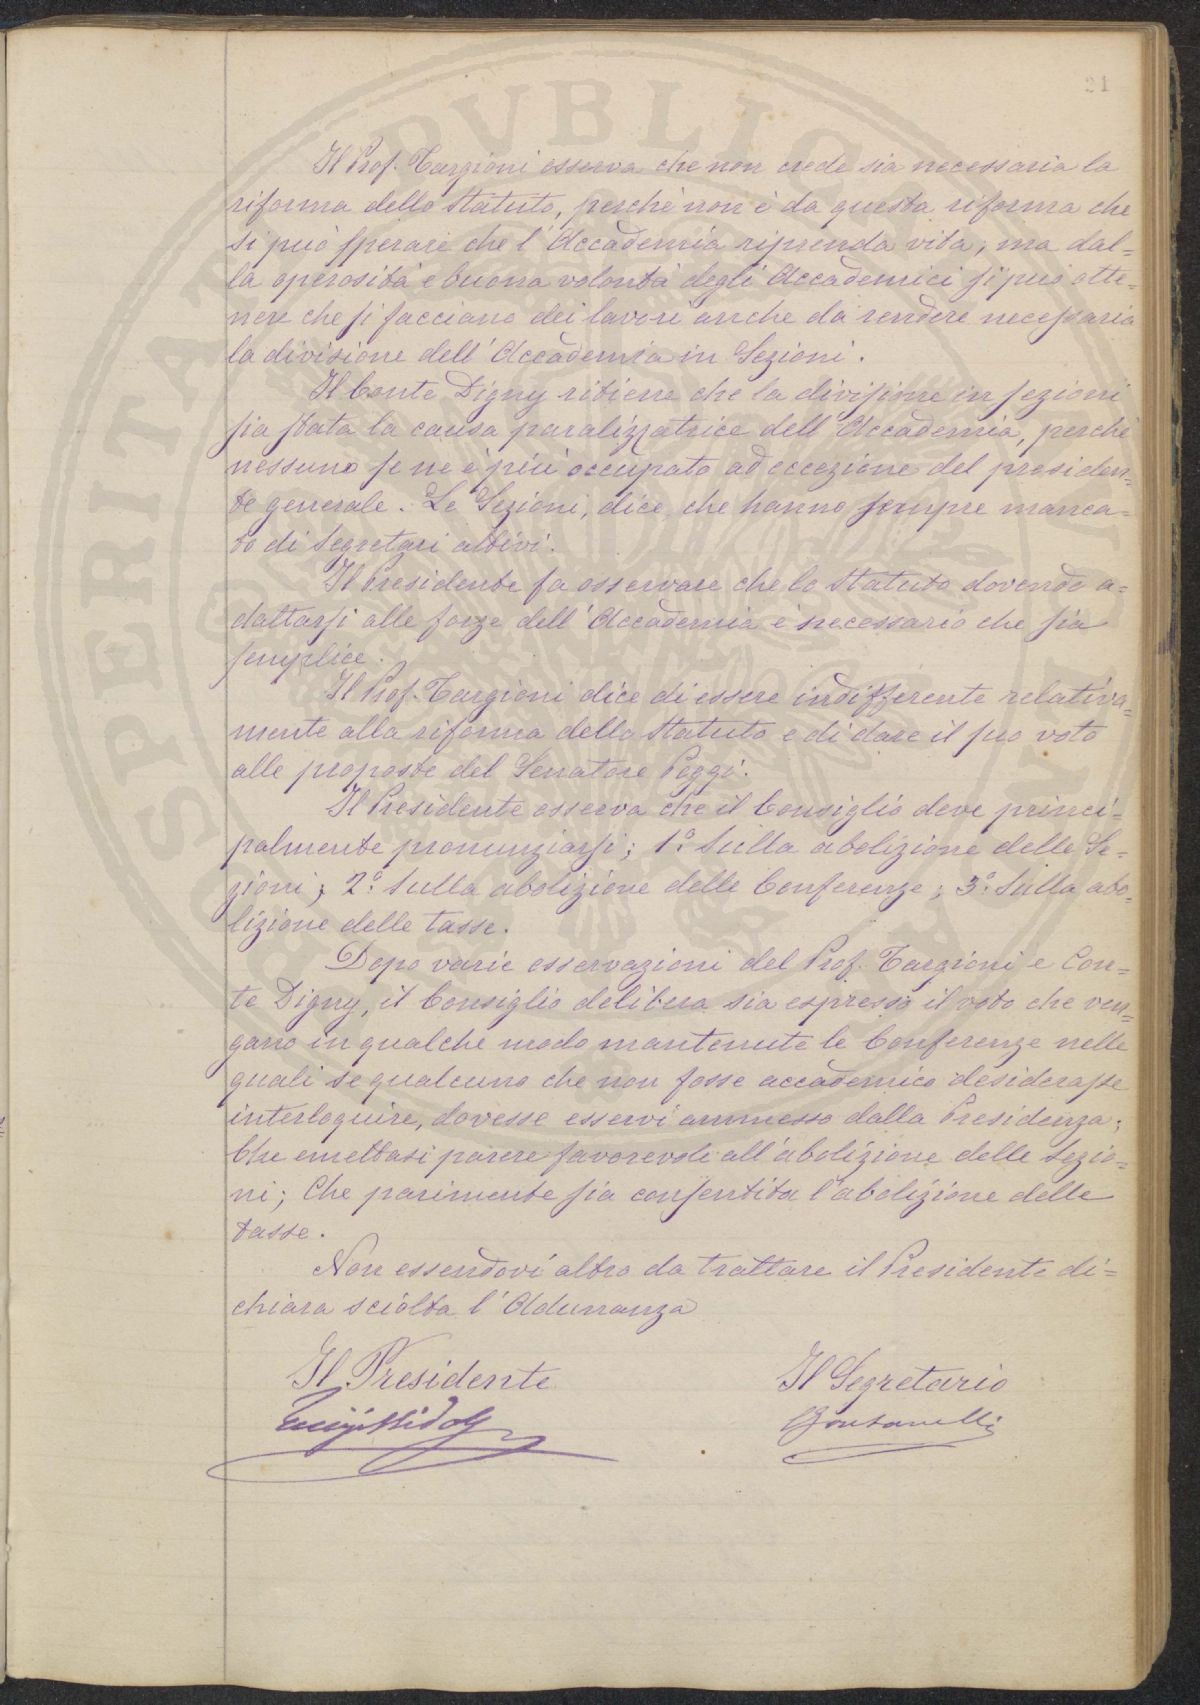 21
Il Prof. Targioni osserva che non crede sia necessaria la
riforma dello Statuto, perchè non è da questa riforma che
si può sperare che l'Accademia riprenda vita; ma dal-
la operosità e buona volontà degli Accademici si può otte-
nere che si facciano dei lavori anche da rendere necessaria
la divisione dell'Accademia in Sezioni.
Il Conte Digny ritiene che la divisione in sezioni
sia stata la causa paralizzatrice dell'Accademia, perchè
nessuno se ne è più occupato ad eccezione del presiden-
te generale. Le Sezioni, dice, che hanno sempre manca-
to di Segretari attivi.
Il Presidente fa osservare che lo Statuto dovendo a-
dattarsi alle forze dell'Accademia è necessario che sia
semplice.
Il Prof. Targioni dice di essere indifferente relativa-
mente alla riforma dello Statuto e di dare il suo voto
alle proposte del Senatore Peggi.
Il Presidente osserva che il Consiglio deve princi-
palmente pronunziarsi; 1.° Sulla abolizione delle Se-
zioni; 2.° Sulla abolizione delle Conferenze; 3.° Sulla abo-
lizione delle tasse.
Dopo varie osservazioni del Prof. Targioni e Con-
te Digny, il Consiglio delibera sia espresso il voto che ven-
gano in qualche modo mantenute le Conferenze nelle
quali se qualcuno che non fosse accademico desiderasse
interloquire, dovesse esservi ammesso dalla Presidenza;
Che emettasi parere favorevole all'abolizione delle Sezio-
ni; Che parimente sia consentita l'abolizione delle
tasse.
Non essendovi altro da trattare il Presidente di-
chiara sciolta l'Adunanza
Il Presidente
Il Segretario
Luigi Ridolfi
Fontanelli
PUBLICA